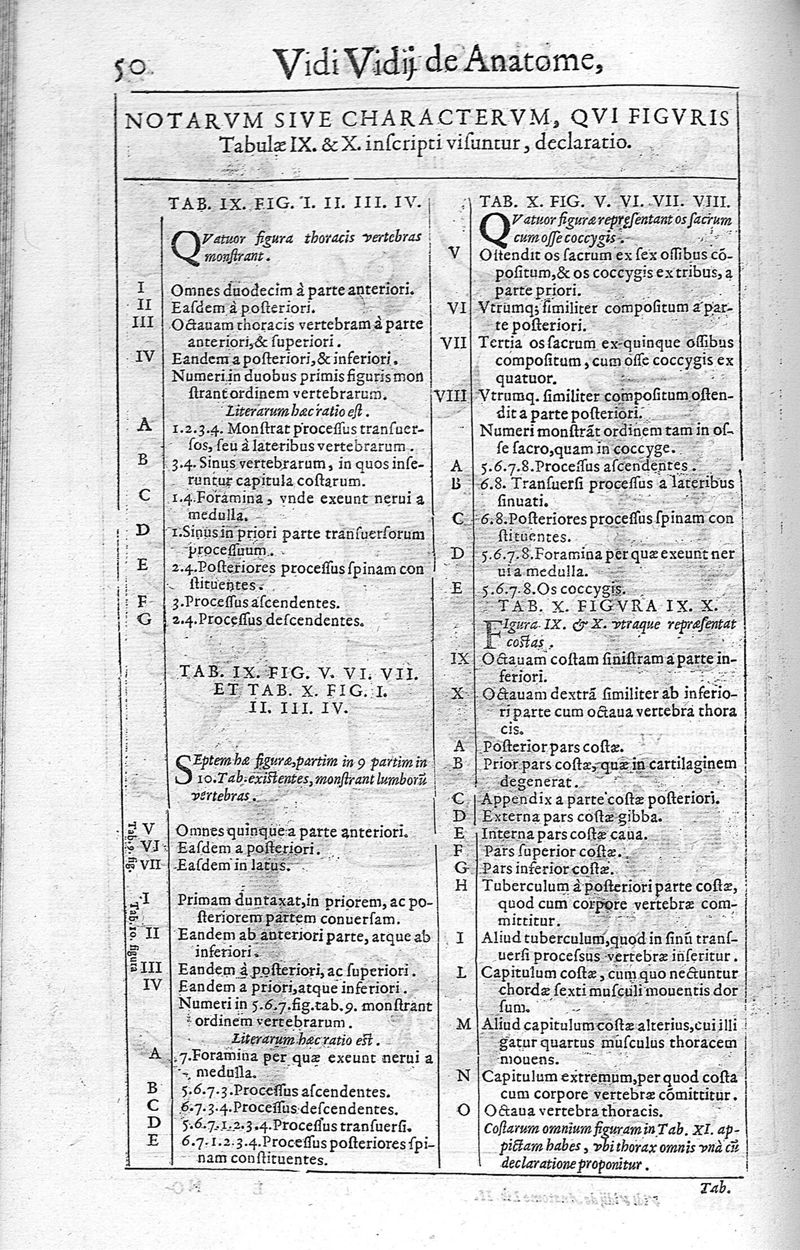 50
Vidi Vidij de Anatome,
NOTARVM SIVE CHARACTERVM, QVI FIGVRIS
Tabulæ IX. & X. inſcripti viſuntur, declaratio.
TAB. IX. FIG. I. II. III. IV.
QVatuor figura thoracis vertebras
monſtrant.
I Omnes duodecim à parte anteriori.
II Eaſdem à poſteriori.
III Octauam thoracis vertebram à parte
anteriori, & ſuperiori.
IV Eandem a poſteriori, & inferiori.
Numeri in duobus primis figuris mon
ſtrant ordinem vertebrarum.
Literarum hæc ratio eſt.
A 1.2.3.4. Monſtrat proceſſus tranſuer-
ſos, ſeu à lateribus vertebrarum.
B 3.4. Sinus vertebrarum, in quos inſe-
runtur capitula coſtarum.
C 1.4. Foramina, vnde exeunt nerui a
medulla.
D 1. Sinus in priori parte tranſuerſorum
proceſſuum.
E 2.4. Poſteriores proceſſus ſpinam con
ſtituentes.
F 3. Proceſſus aſcendentes.
G 2.4. Proceſſus deſcendentes.
TAB. IX. FIG. V. VI. VII.
ET TAB. X. FIG. I.
II. III. IV.
SEptem hæ figuræ, partim in 9 partim in
10. Tab. exiſtentes, monſtrant lumborū
vertebras.
Tab. 9. fig.
V Omnes quinque a parte anteriori.
VI Eaſdem a poſteriori.
VII Eaſdem in latus.
Tab. 10. figura
I Primam duntaxat, in priorem, ac po-
ſteriorem partem conuerſam.
II Eandem ab anteriori parte, atque ab
inferiori.
III Eandem à poſteriori, ac ſuperiori.
IV Eandem a priori, atque inferiori.
Numeri in 5.6.7. fig. tab. 9. monſtrant
ordinem vertebrarum.
Literarum hæc ratio eſt.
A 7. Foramina per quæ exeunt nerui a
medulla.
B 5.6.7.3. Proceſſus aſcendentes.
C 6.7.3.4. Proceſſus deſcendentes.
D 5.6.7.1.2.3.4. Proceſſus tranſuerſi.
E 6.7.1.2.3.4. Proceſſus poſteriores ſpi-
nam conſtituentes.
TAB. X. FIG. V. VI. VII. VIII.
QVatuor figuræ repreſentant os ſacrum
cum oſſe coccygis.
V Oſtendit os ſacrum ex ſex oſſibus cō-
poſitum, & os coccygis ex tribus, a
parte priori.
VI Vtrumq; ſimiliter compoſitum a par-
te poſteriori.
VII Tertia os ſacrum ex quinque oſſibus
compoſitum, cum oſſe coccygis ex
quatuor.
VIII Vtrumq. ſimiliter compoſitum oſten-
dit a parte poſteriori.
Numeri monſtrāt ordinem tam in oſ-
ſe ſacro, quam in coccyge.
A 5.6.7.8. Proceſſus aſcendentes.
B 6.8. Tranſuerſi proceſſus a lateribus
ſinuati.
C 6.8. Poſteriores proceſſus ſpinam con
ſtituentes.
D 5.6.7.8. Foramina per quæ exeunt ner
ui a medulla.
E 5.6.7.8. Os coccygis.
TAB. X. FIGVRA IX. X.
FIgura IX. & X. vtraque repræſentat
coſtas.
IX Octauam coſtam ſiniſtram a parte in-
feriori.
X Octauam dextrā ſimiliter ab inferio-
ri parte cum octaua vertebra thora
cis.
A Poſterior pars coſtæ.
B Prior pars coſtæ, quæ in cartilaginem
degenerat.
C Appendix a parte coſtæ poſteriori.
D Externa pars coſtæ gibba.
E Interna pars coſtæ caua.
F Pars ſuperior coſtæ.
G Pars inferior coſtæ.
H Tuberculum à poſteriori parte coſtæ,
quod cum corpore vertebræ com-
mittitur.
I Aliud tuberculum, quod in ſinū tranſ-
uerſi proceſſus vertebræ inſeritur.
L Capitulum coſtæ, cum quo nectuntur
chordæ ſexti muſculi mouentis dor
ſum.
M Aliud capitulum coſtæ alterius, cui illi
gatur quartus muſculus thoracem
mouens.
N Capitulum extremum, per quod coſta
cum corpore vertebræ cōmittitur.
O Octaua vertebra thoracis.
Coſtarum omnium figuram in Tab. XI. ap-
pictam habes, vbi thorax omnis vnà cū
declaratione proponitur.
Tab.